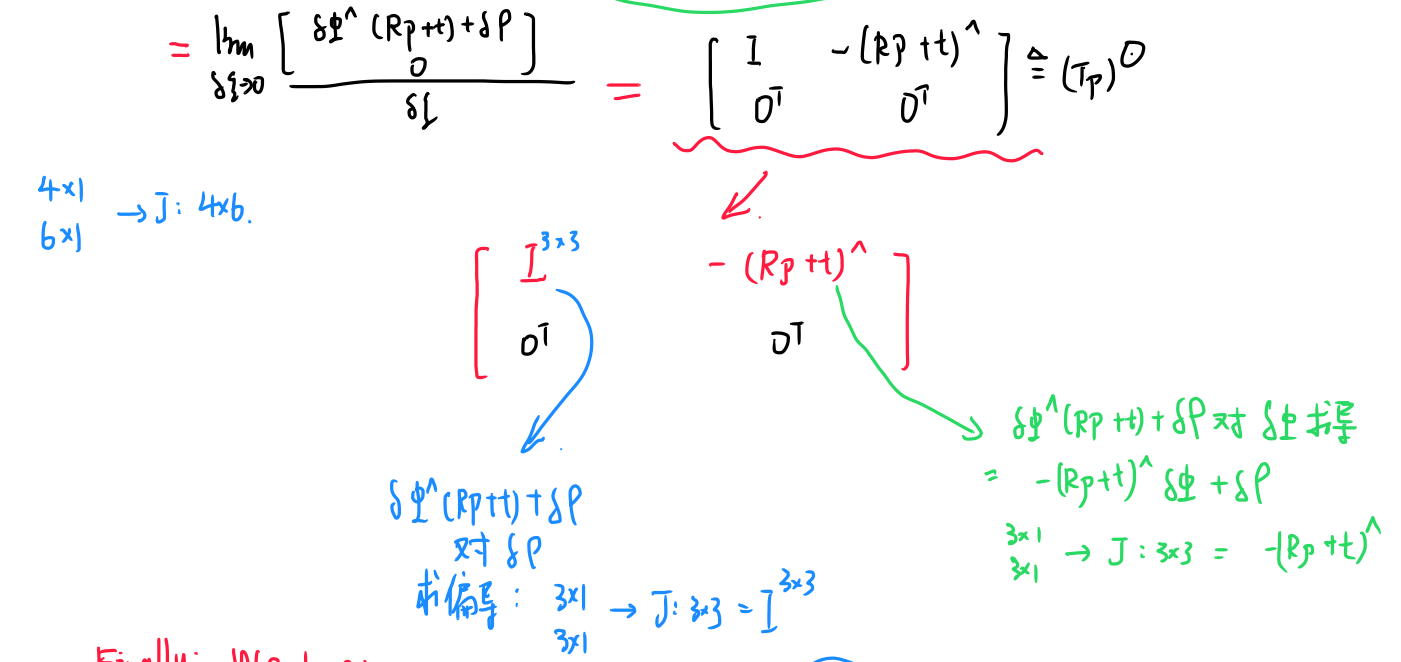 = lim_{δξ→0} [ δφ^(Rp+t)+δρ ; 0 ] / δξ = [ I -(Rp+t)^ ; 0ᵀ 0ᵀ ] ≜ (Tp)^⊙
4×1
6×1 → J: 4×6.
[ I^{3×3} -(Rp+t)^ ]
[ 0ᵀ 0ᵀ ]
δφ^(Rp+t)+δρ
对 δρ
求偏导: 3×1
3×1 → J: 3×3 = I^{3×3}
δφ^(Rp+t)+δρ 对 δφ 求导
= -(Rp+t)^ δφ + δρ
3×1
3×1 → J: 3×3 = -(Rp+t)^
Finally: